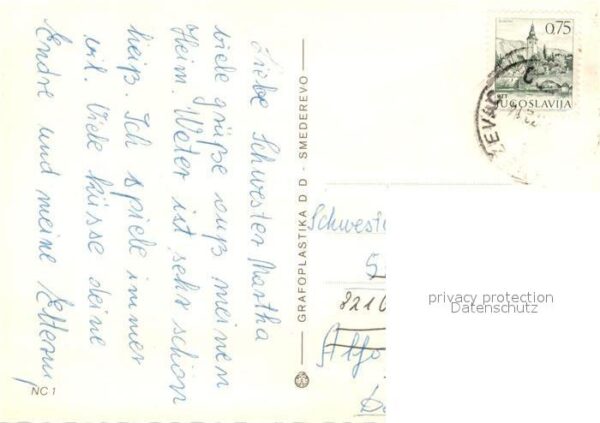 Liebe Schwester Martha
viele grüße auß meinen
Heim. Weter ist sehr schön
heiß. Ich spiele immer
viel. Viele küsse deine
Andre und meine Eltern
GRAFOPLASTIKA D D - SMEDEREVO
NC 1
0,75
JUGOSLAVIJA
Schweste
privacy protection
Datenschutz